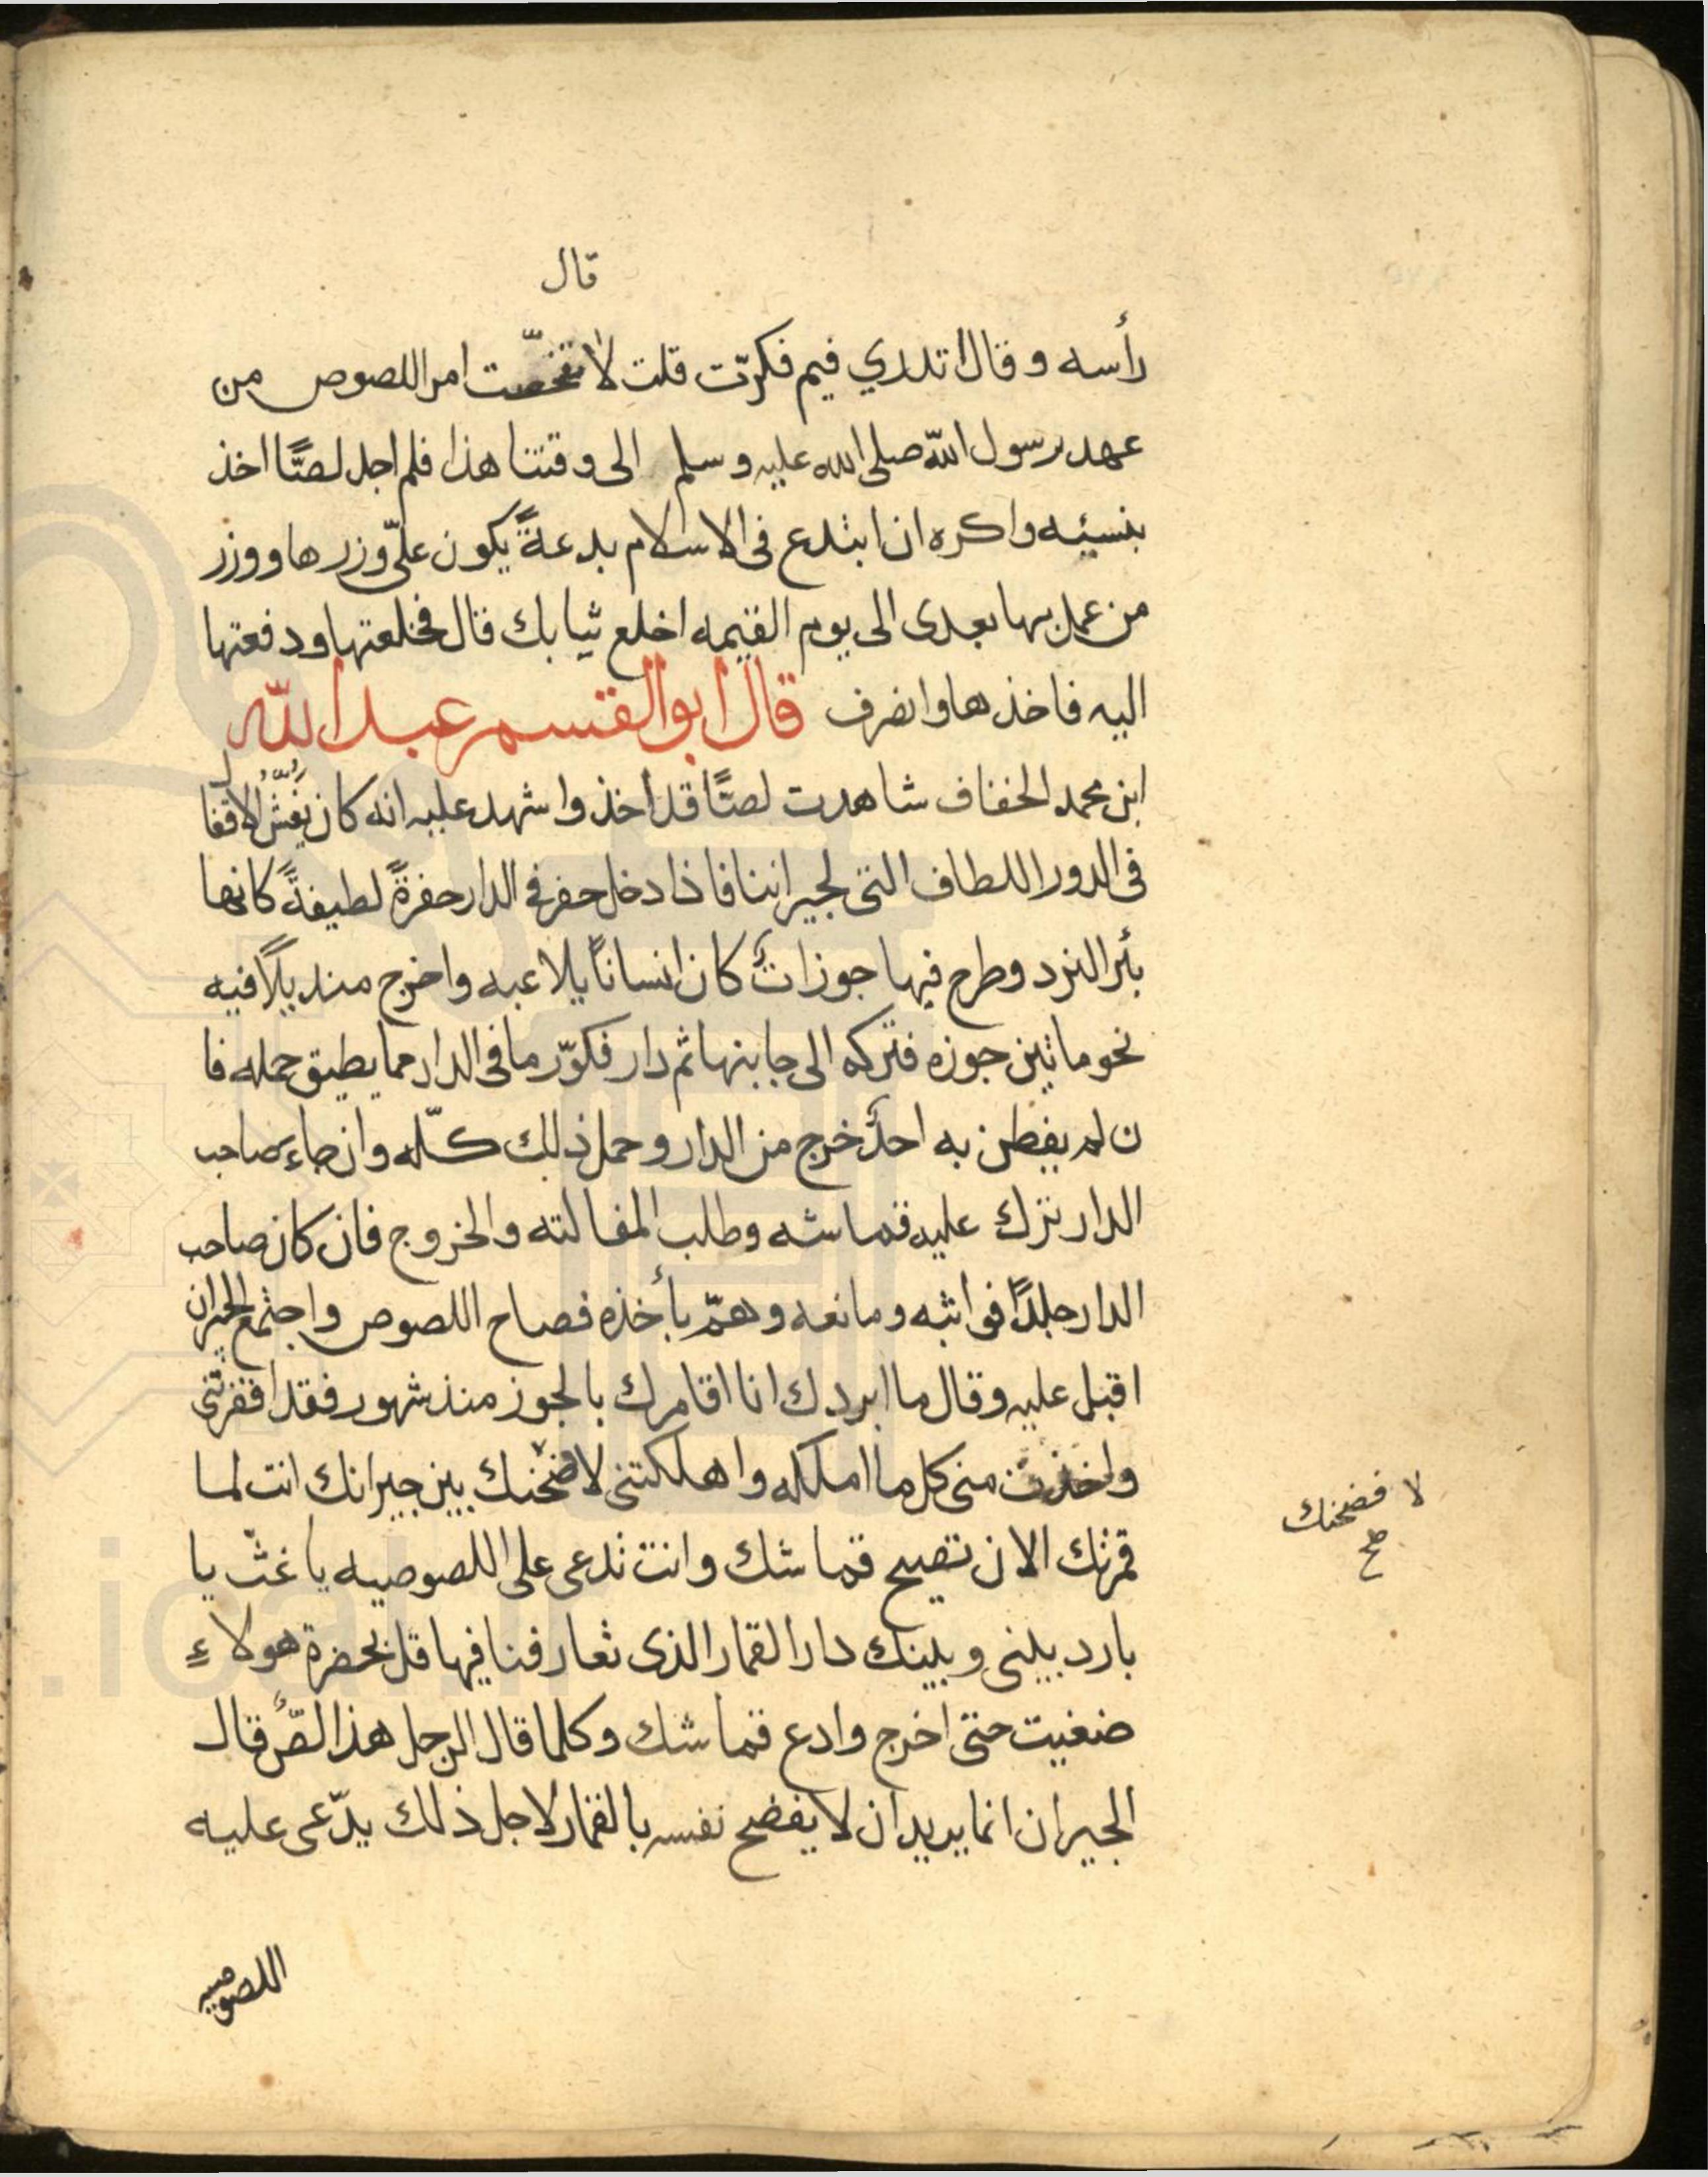 قال
رأسه وقال اتدري فيم فكرّت قلت لا تفحّصت امر اللصوص من
عهد رسول اللّه صلى الله عليه وسلم الى وقتنا هذا فلم اجد لصًّا اخذ
بنسيئه واكره ان ابتدع فى الاسلام بدعةً يكون علىّ وزرها ووزر
من عمل بها بعدى الى يوم القيمه اخلع ثيابك قال فخلعتها ودفعتها
اليه فاخذها وانصرف قال ابو القسم عبد اللّه
ابن محمد الخفاف شاهدت لصًّا قد اخذ واشهد عليه انه كان يفُشُّ الاقفال
فى الدور اللطاف التى لجيراننا فاذا دخل حفر فى الدار حفرةً لطيفةً كانها
بئر النرد وطرح فيها جوزاتٌ كان انسانًا يلاعبه واخرج منديلًا فيه
نحو ماتين جوزه فتركه الى جانبها ثم دار فكوّر ما فى الدار مما يطيق حمله فا
ن لم يفطن به احدٌ خرج من الدار وحمل ذلك كلّه وان جاء صاحب
الدار ترك عليه قماشه وطلب المفالته والخروج فان كان صاحب
الدار جلدًا فواثبه ومانعه وهمّ بأخذه فصاح اللصوص واجتمع الجيران
اقبل عليه وقال ما ابردك انا اقامرك بالجوز منذ شهور فقد افقرتنى
واخذت منى كل ما املكه واهلكتنى لافضحنك بين جيرانك انت لما
قمرتك الان تصيح قماشك وانت تدعى على اللصوصيه يا غثّ يا
بارد بينى وبينك دار القمار الذى تعارفنا فيها قل بحضرة هولاءِ
ضغيت حتى اخرج وادع قماشك وكلما قال الرجل هذا لصٌّ قال
الجيران انما يريد ان لا يفضح نفسه بالقمار لاجل ذلك يدّعى عليه
اللصوصيه
لا فضحنك
صح